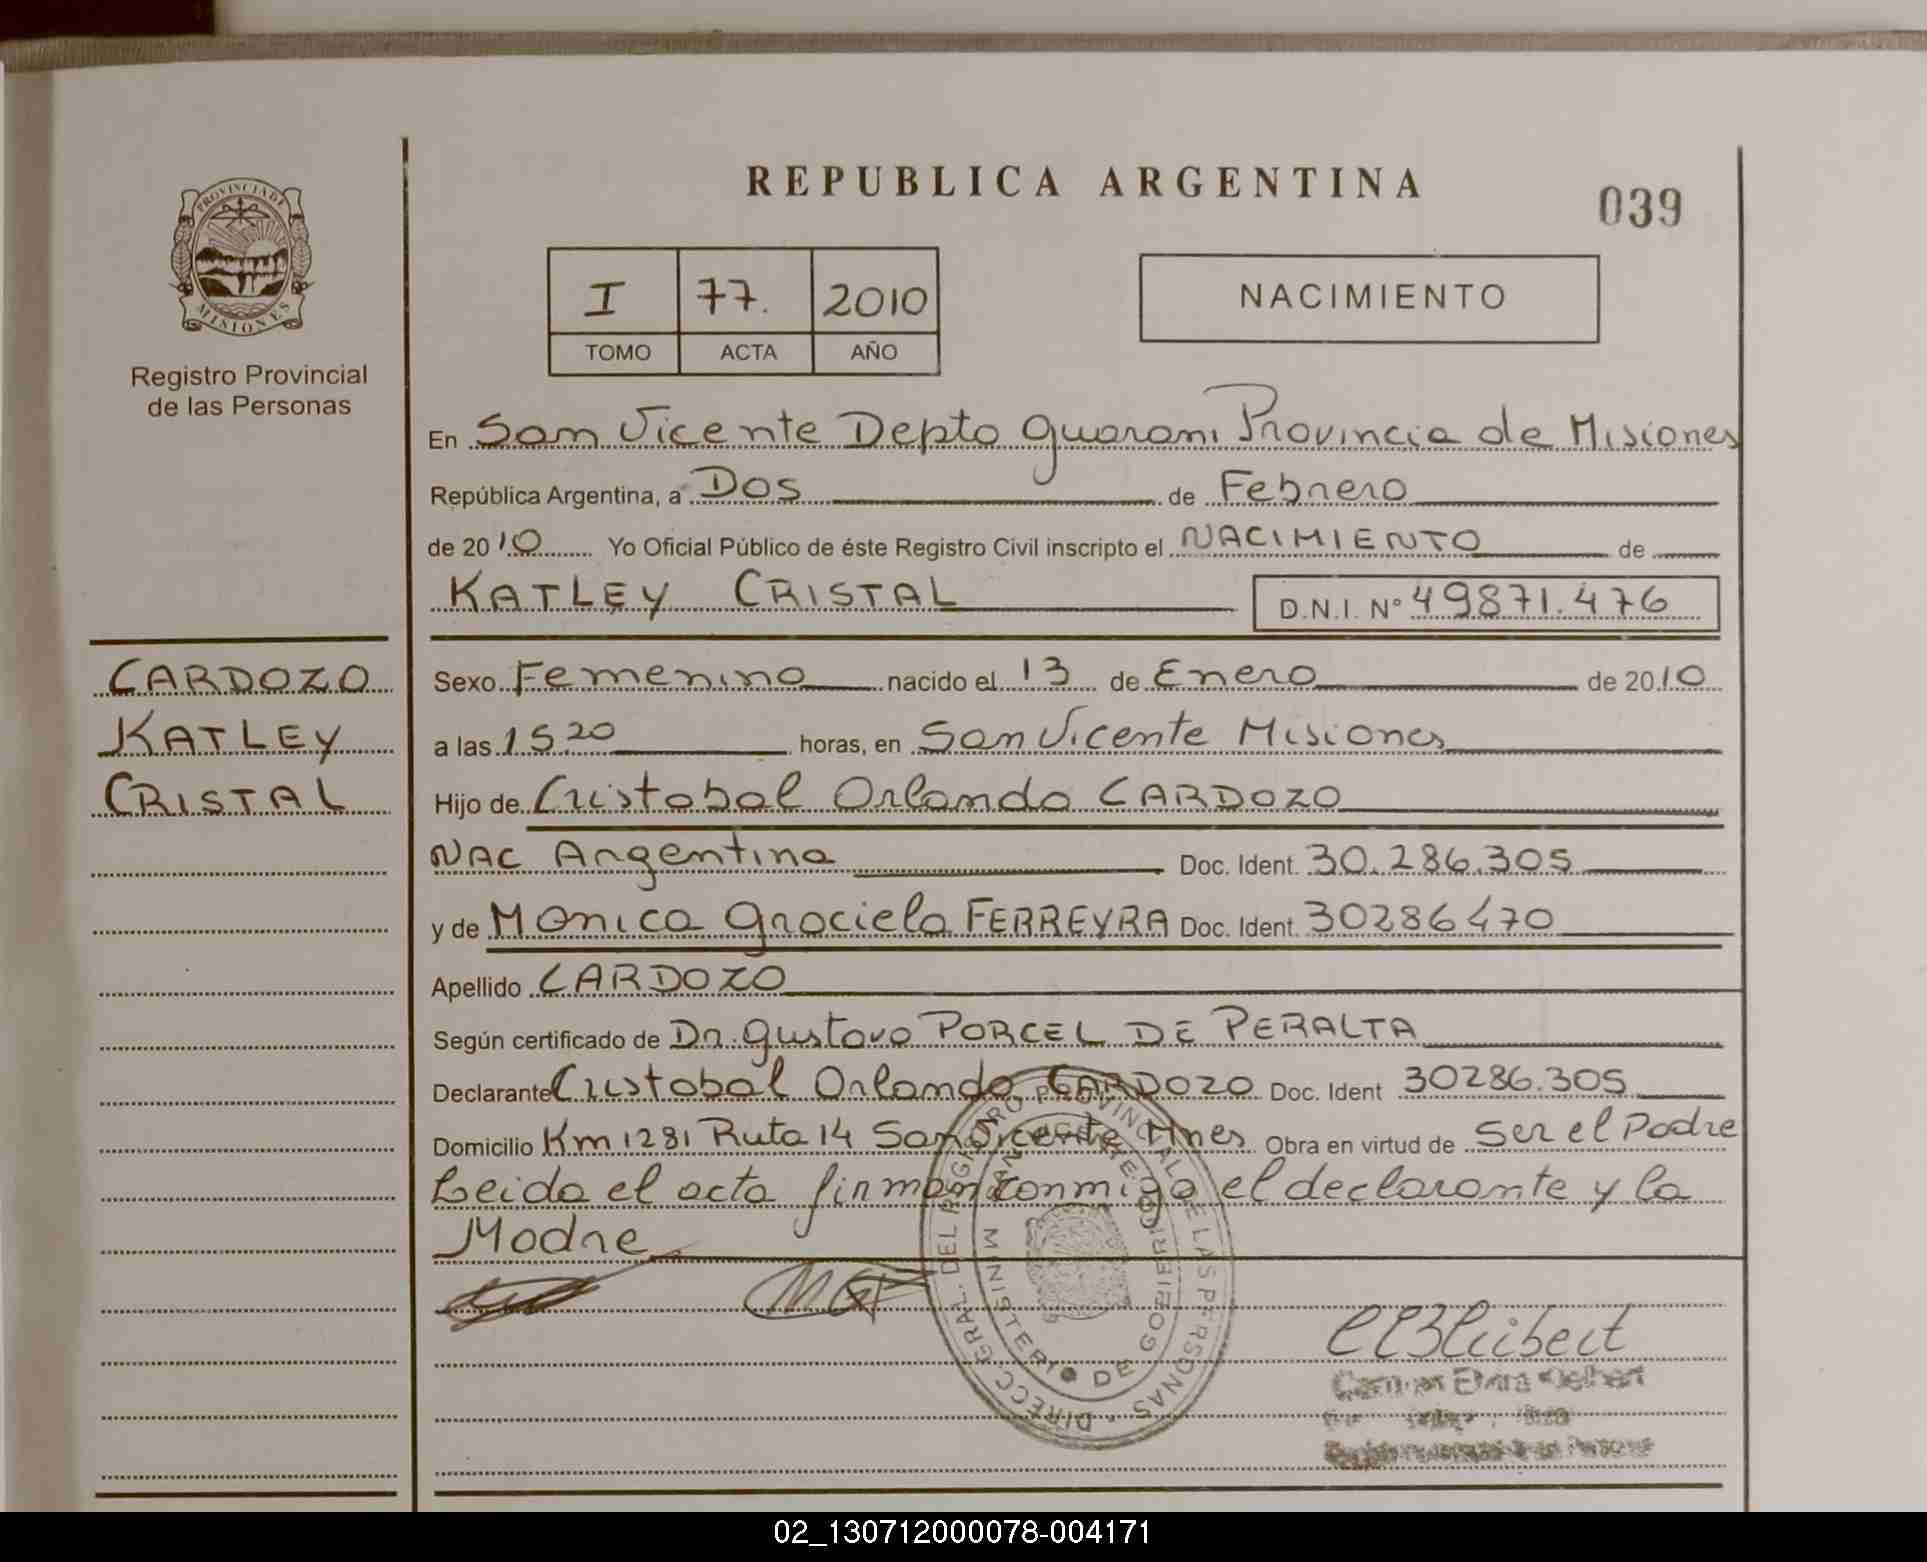 PROVINCIA DE
MISIONES
Registro Provincial
de las Personas
CARDOZO
KATLEY
CRISTAL
REPUBLICA ARGENTINA
039
I 77. 2010
TOMO ACTA AÑO
NACIMIENTO
En San Vicente Depto Guarani Provincia de Misiones
República Argentina, a Dos de Febrero
de 2010 Yo Oficial Público de éste Registro Civil inscripto el NACIMIENTO de
KATLEY CRISTAL D.N.I. Nº 49871.476
Sexo Femenino nacido el 13 de Enero de 2010
a las 15 20 horas, en San Vicente Misiones
Hijo de Cristobal Orlando CARDOZO
NAC Argentina Doc. Ident. 30.286.305
y de Monica Graciela FERREYRA Doc. Ident. 30286470
Apellido CARDOZO
Según certificado de Dr. Gustavo PORCEL DE PERALTA
Declarante Cristobal Orlando CARDOZO Doc. Ident 30286.305
Domicilio Km 1281 Ruta 14 San Vicente Mnes Obra en virtud de Ser el Padre
Leida el acta firman conmigo el declarante y la
Madre
MGF
DIRECC. GRAL. DEL REGISTRO PROVINCIAL DE LAS PERSONAS
MINISTERIO DE GOBIERNO
SAN VICENTE
02_130712000078-004171